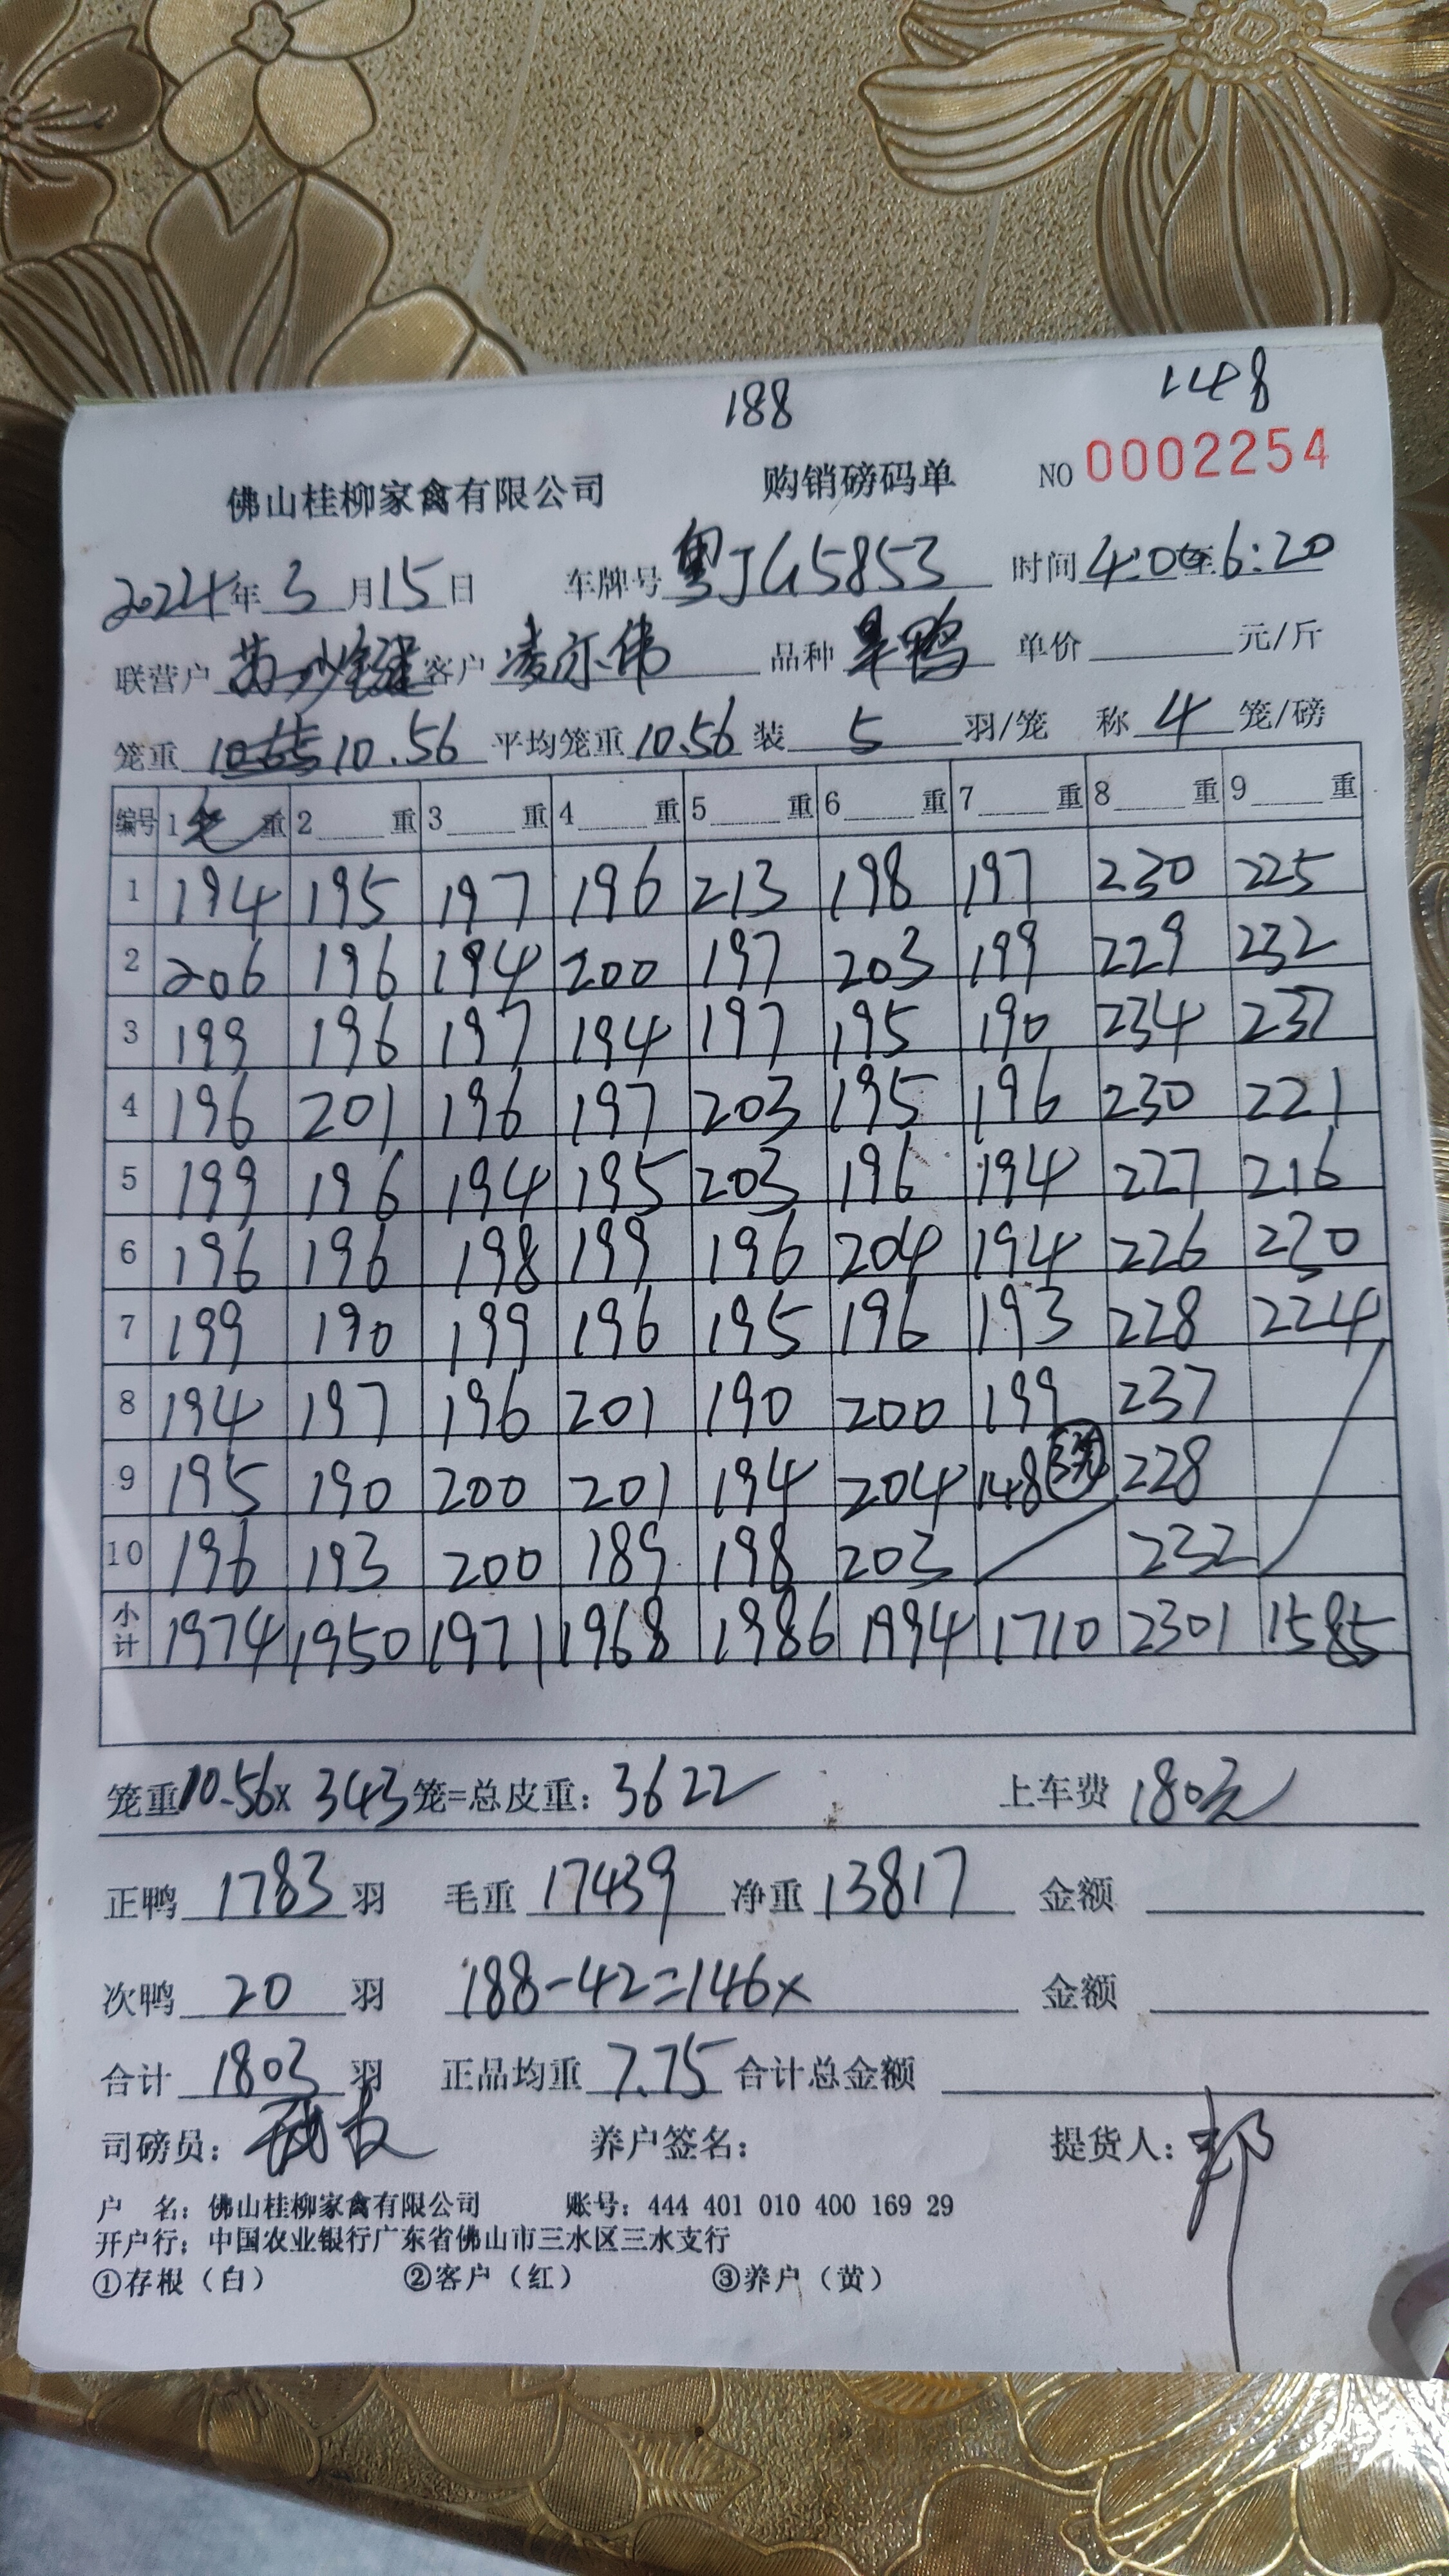 188 148
佛山桂柳家禽有限公司 购销磅码单 NO 0002254
2024年 3 月 15 日 车牌号 粤JG5853 时间 4:0 至 6:20
联营户 客户 凌尔伟 品种 旱鸭 单价 元/斤
笼重 10.56 平均笼重 10.56 装 5 羽/笼 称 4 笼/磅
编号 1 毛 重 2 重 3 重 4 重 5 重 6 重 7 重 8 重 9 重
1 194 195 197 196 213 198 197 230 225
2 206 196 194 200 197 203 199 229 232
3 199 196 197 194 197 195 190 234 237
4 196 201 196 197 203 195 196 230 221
5 199 196 194 195 203 196 194 227 216
6 196 196 198 199 196 204 194 226 230
7 199 190 199 196 195 196 193 228 224
8 194 197 196 201 190 200 199 237
9 195 190 200 201 194 204 148 228
10 196 193 200 189 198 203 232
小计 1974 1950 1971 1968 1986 1994 1710 2301 1585
笼重 10.56 x 343 笼=总皮重: 3622 上车费 180元
正鸭 1783 羽 毛重 17439 净重 13817 金额
次鸭 20 羽 188-42=146x 金额
合计 1803 羽 正品均重 7.75 合计总金额
司磅员: 养户签名: 提货人: 邦
户 名: 佛山桂柳家禽有限公司 账号: 444 401 010 400 169 29
开户行: 中国农业银行广东省佛山市三水区三水支行
①存根（白） ②客户（红） ③养户（黄）